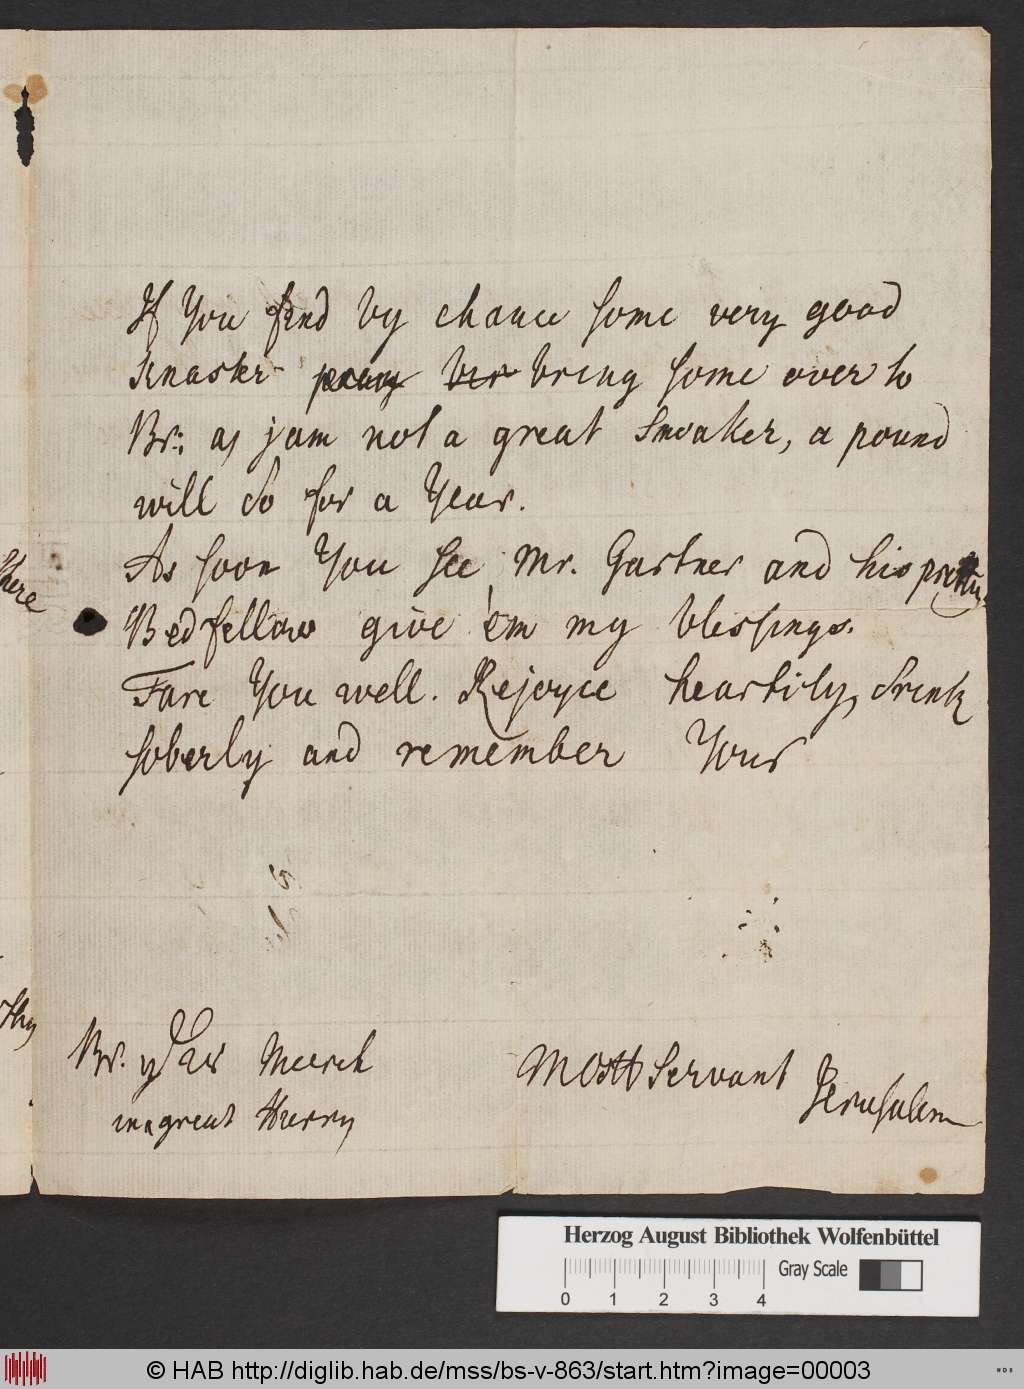 If You find by chance some very good
Knaster pray ber bring some over to
Br: as jam not a great Smoaker, a pound
will do for a Year.
As soon You see Mr. Gartner and his pretty
Bedfellow give 'em my blessings.
Fare You well. Rejoyce heartily, drink
soberly and remember Your
there
thy
Br. March
in a great Hurry
Most Servant
Jerusalem
Herzog August Bibliothek Wolfenbüttel
Gray Scale
0 1 2 3 4
© HAB http://diglib.hab.de/mss/bs-v-863/start.htm?image=00003